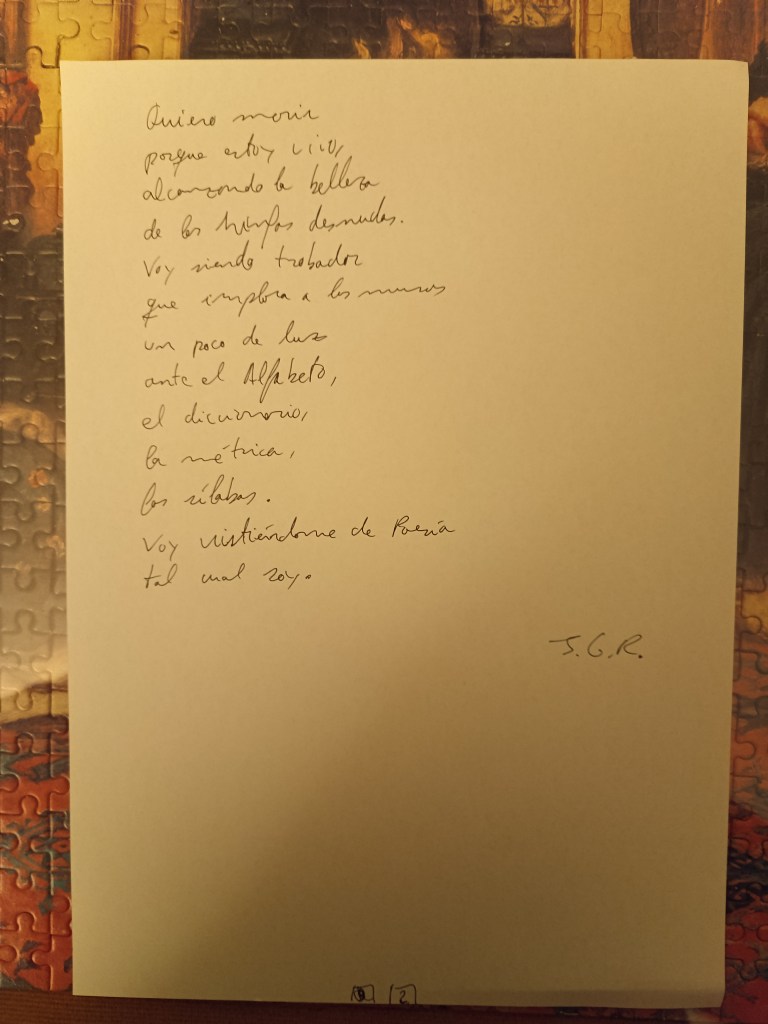 Quiero morir
porque estoy vivo,
alcanzando la belleza
de las Ninfas desnudas.
Voy siendo trobador
que implora a las musas
un poco de luz
ante el Alfabeto,
el diccionario,
la métrica,
las sílabas.
Voy vistiéndome de Poesía
tal cual soy.
J.G.R.
2